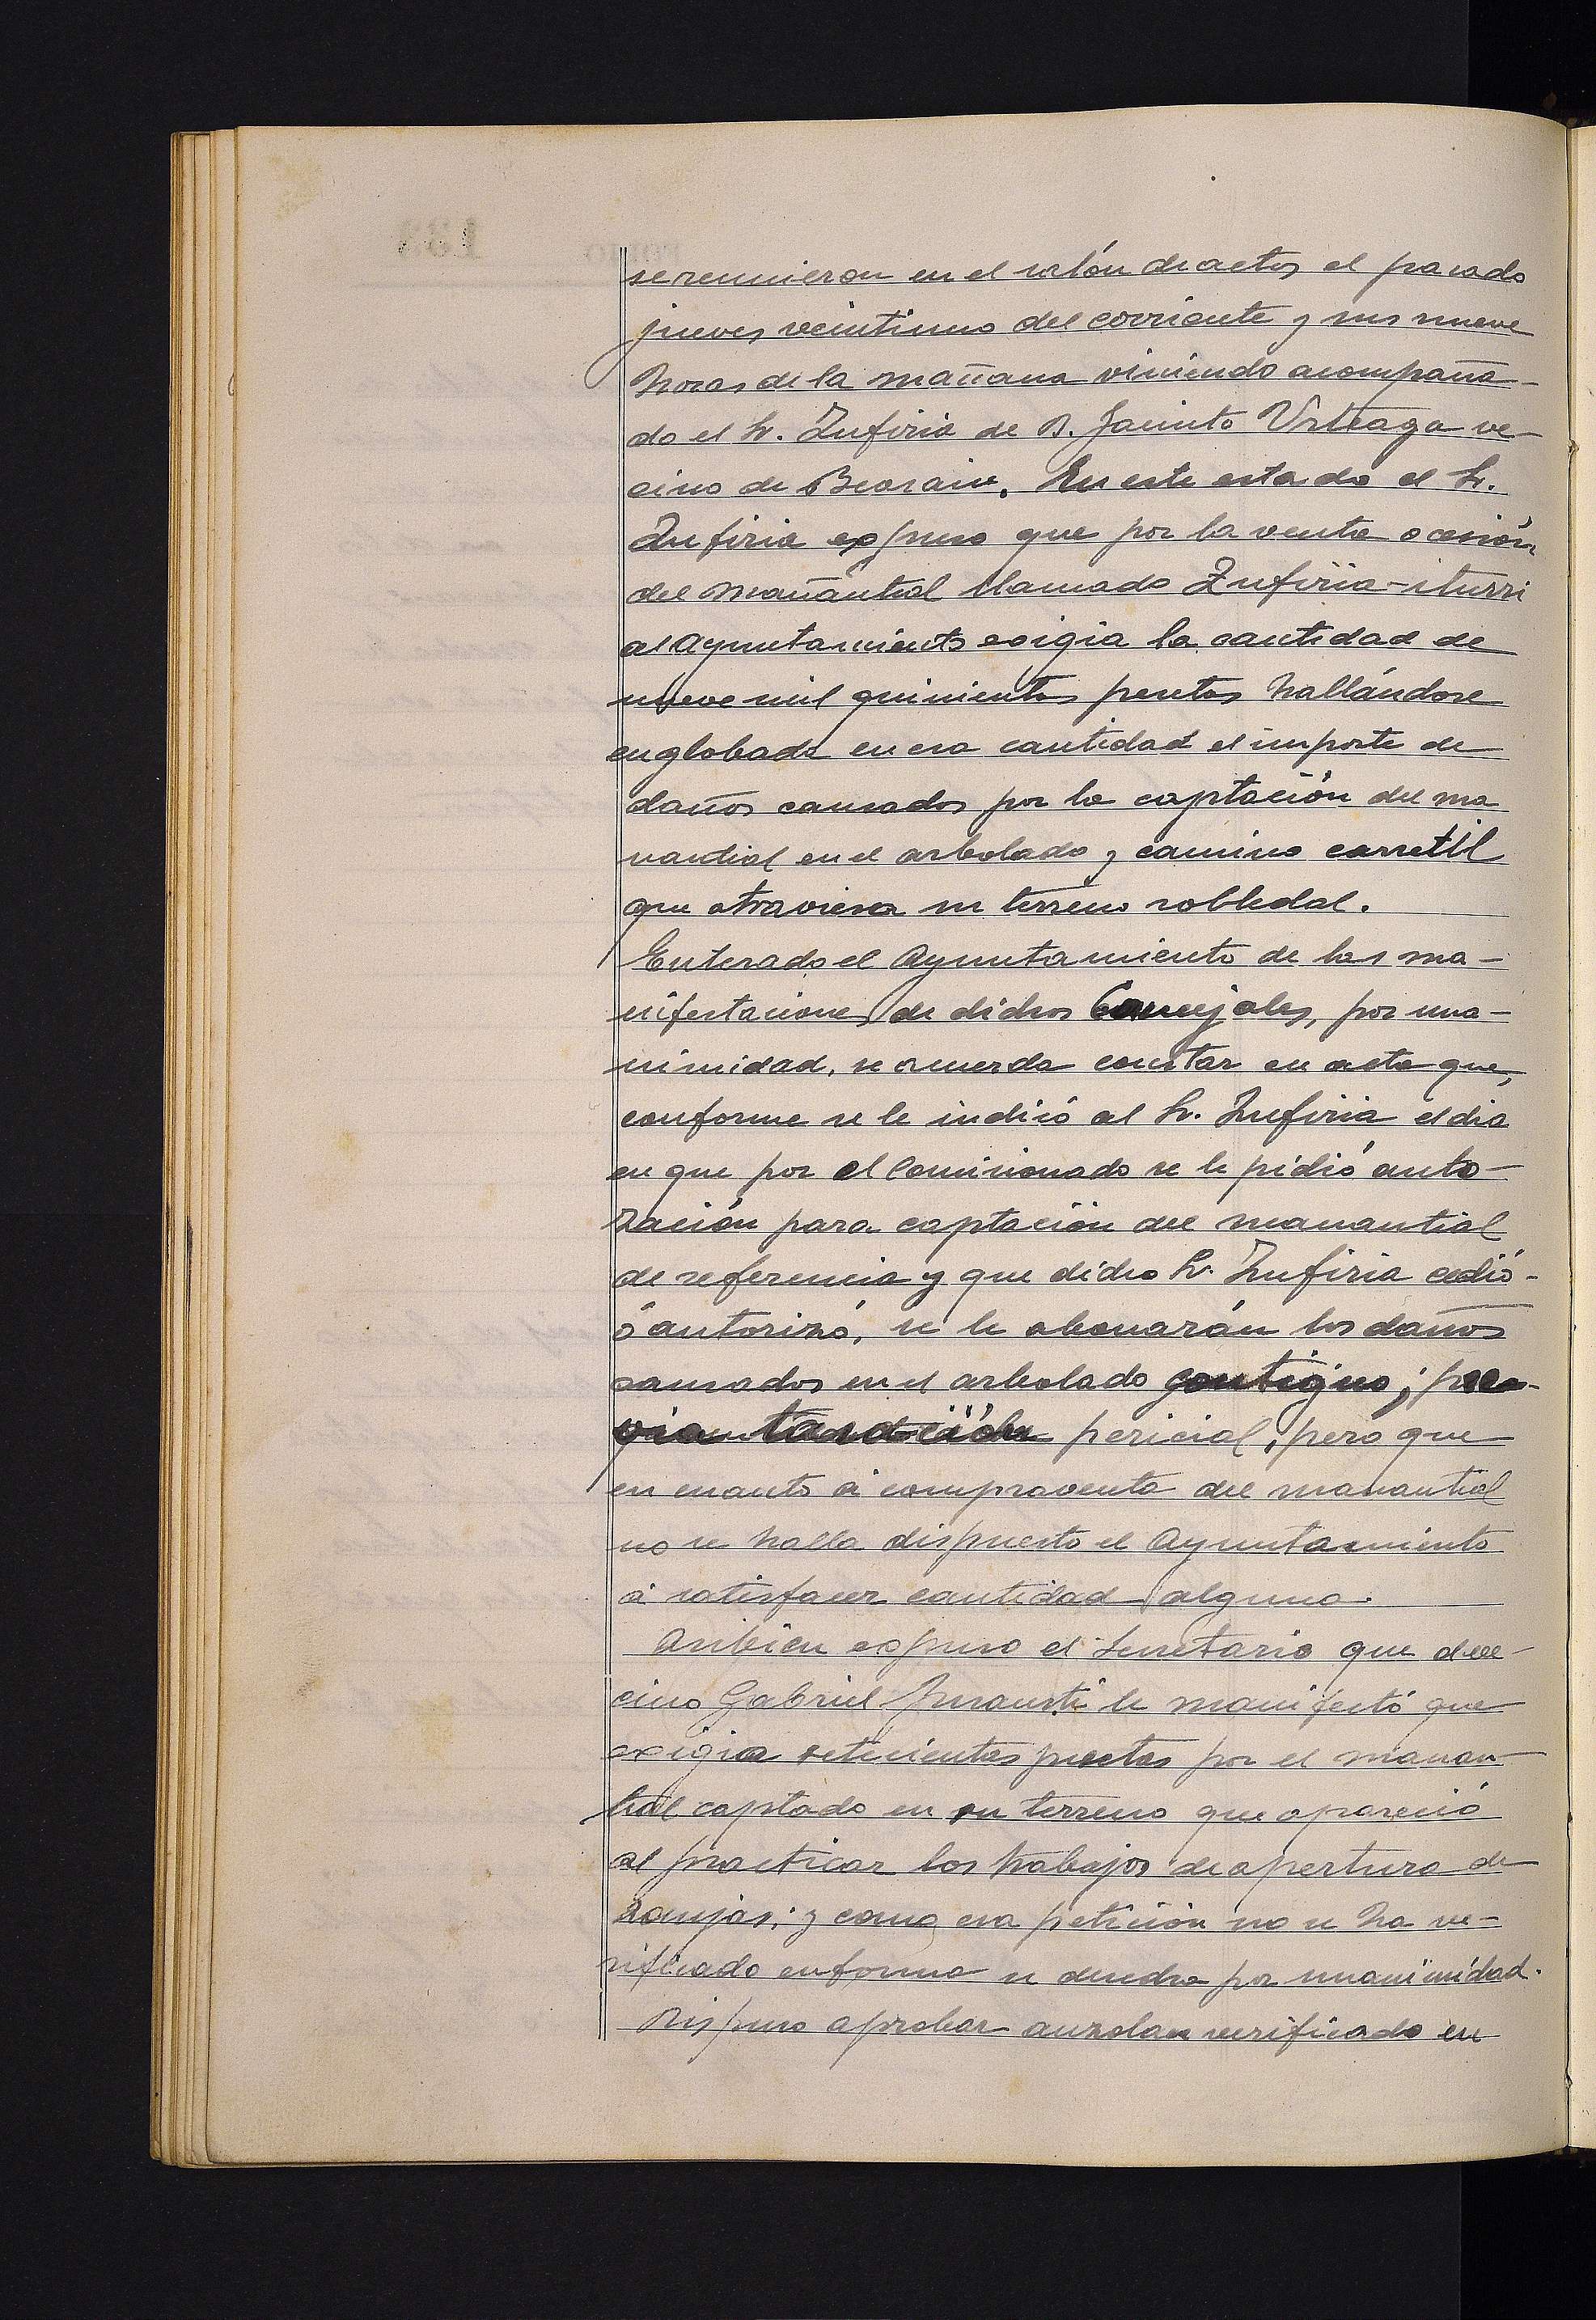 se reunieron en el salón de actos el pasado
jueves veintiuno del corriente y sus nueve
horas de la mañana viniendo acompaña-
do el Sr. Zufiria de D. Jacinto Urteaga ve-
cino de Beasain. En este estado el Sr.
Zufiria expuso que por la venta o cesión
del mañantial llamado Zufiria-iturri
al Ayuntamiento exigia la cantidad de
nueve mil quinientas pesetas hallándose
englobado en esa cantidad el importe de
daños causados por la captación del ma
nantial en el arbolado y camino carretil
que atraviesa su terreno robledal.
Enterado el Ayuntamiento de las ma-
nifestaciones de dichos Concejales, por una-
nimidad, se acuerda constar en acta que,
conforme se le indicó al Sr. Zufiria el dia
en que por el Comisionado se le pidió auto-
zación para captación del manantial
de referencia y que dicho Sr. Zufiria cedió-
ó autorizó, se le abonarán los daños
causados en el arbolado contiguo; pre-
via tasación pericial, pero que
en cuanto á compraventa del manantial
no se halla dispuesto el Ayuntamiento
á satisfacer cantidad alguna.
Asibien expuso el Secretario que el ve-
cino Gabriel Insausti le manifestó que
exigia setecientas pesetas por el manan-
tial captado en su terreno que apareció
al practicar los trabajos de apertura de
zanjas; y como esa petición no se ha ve-
rificado en forma se desecha por unanimidad.
Dispuso aprobar auzolan verificado en